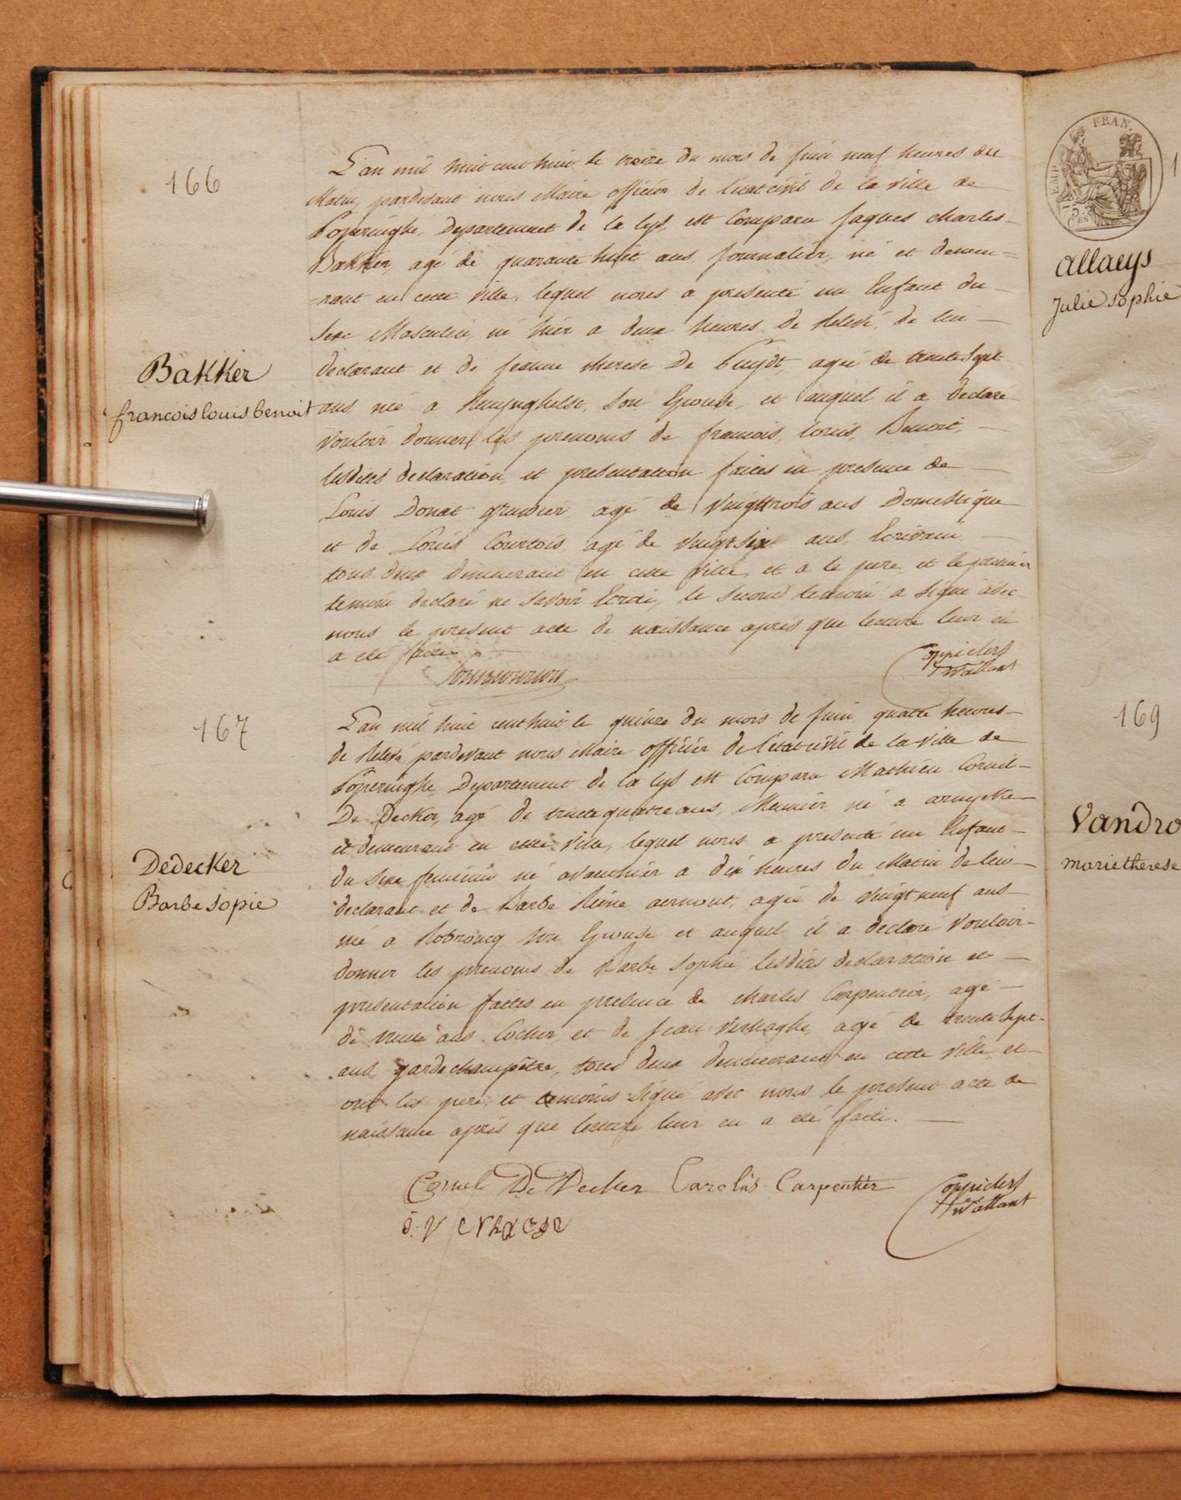 166
L'an mil huit cent huit le treize du mois de juin neuf heures du
Matin, pardevant nous Maire officier de l'etat civil de la ville de
Poperinghe, Departement de la Lys, est Comparu Jaques charles
Bakker, agé de quarante huit ans, journalier, né et demeu-
rant en cette ville, lequel nous a presenté un Enfant du
Sexe Masculin, né hier a deux heures de Relevé, de lui
declarant et de jeanne therese De Puydt, agée de trente Sept
ans née a Reninghelst, Son Epouse, et auquel il a Declaré
Vouloir donner les prenoms de francois, Louis, Benoit,
lesdites declaration et presentation faites en presence de
Louis Donat gruwier, agé de Vingttrois ans Domestique
et de Louis Courtois agé de Vingt Six ans, Ecrivain
tous deux demeurant en cette Ville, et a le pere et le premier
temoin declaré ne savoir Ecrire, le second temoin a Signé avec
nous le present acte de naissance après que lecture leur en
a eté faite
Bakker
francois louis benoit
Coppieters
t'Wallant
167
L'an mil huit cent huit le quinze du mois de juin quatre heures
de Relevé pardevant nous Maire officier de l'etat civil de la Ville de
Poperinghe, Departement de la Lys est Comparu Mathieu Cornil
De Decker, agé de trente quatre ans, Meunier né a
et demeurant en cette Ville, lequel nous a presenté un Enfant
du Sexe feminin né avanthier a dix heures du Matin de lui
declarant et de Barbe Reine aernout, agée de Vingt neuf ans
née a Son Epouse et auquel il a declaré Vouloir
donner les prenoms de Barbe Sophie lesdites declaration et
presentation faites en presence de Charles Carpentier, agé
de trente ans Cocher, et de Jean Verhaghe, agé de trente Sept
ans gardechampêtre, tous deux demeurant en cette Ville et
ont les pere et temoins Signé avec nous le present acte de
naissance après que lecture leur en a eté faite.
Dedecker
Barbe sopie
Cornel De Decker Carolus Carpentier
Coppieters
t'Wallant
EMP. FRAN.
allaeys
Julie sophie
169
Vandro
marie therese